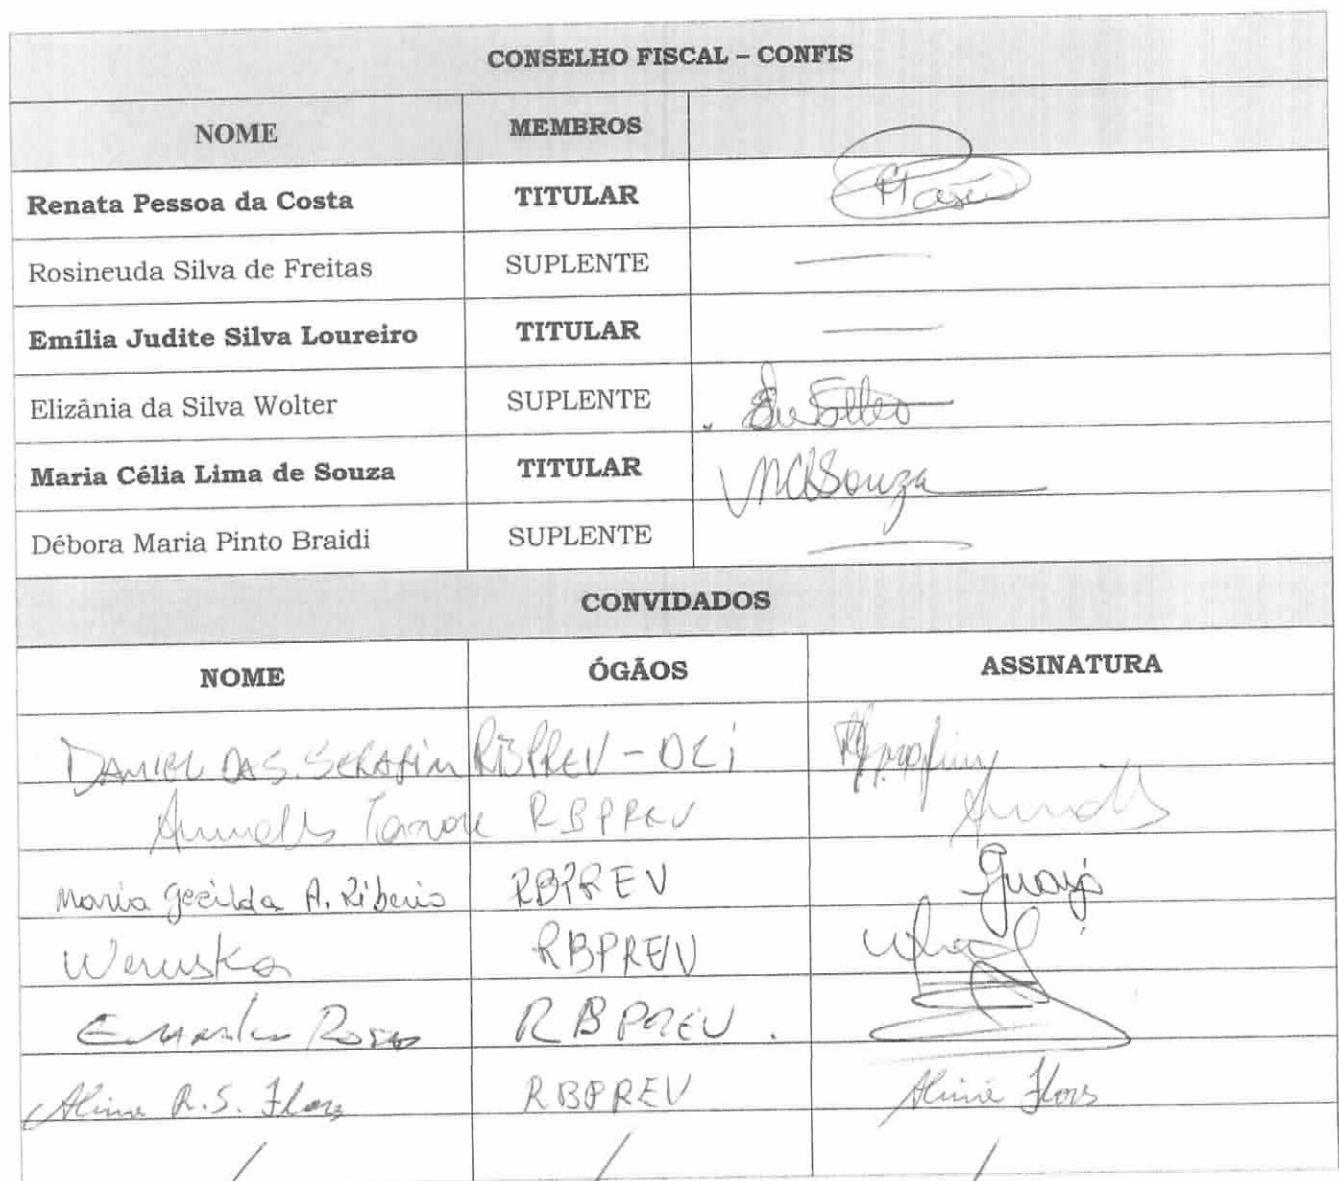 CONSELHO FISCAL – CONFIS
NOME MEMBROS
Renata Pessoa da Costa TITULAR
Rosineuda Silva de Freitas SUPLENTE
Emília Judite Silva Loureiro TITULAR
Elizânia da Silva Wolter SUPLENTE
Maria Célia Lima de Souza TITULAR MCLSouza
Débora Maria Pinto Braidi SUPLENTE
CONVIDADOS
NOME ÓGÃOS ASSINATURA
DANIEL DA S. SERAFIM RBPREV - DCI
RBPREV
Maria Gecilda A. Ribeiro RBPREV
Weruska RBPREV
RBPREV.
Aline R. S. Flores RBPREV Aline Flores